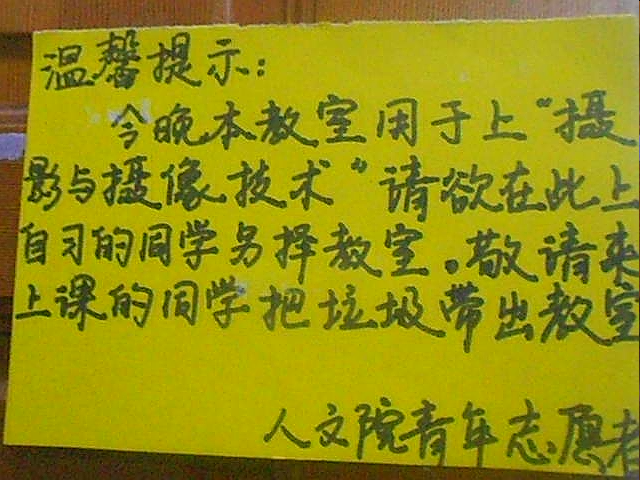 温馨提示：
今晚本教室用于上“摄
影与摄像技术”请欲在此上
自习的同学另择教室。敬请来
上课的同学把垃圾带出教室
人文院青年志愿者